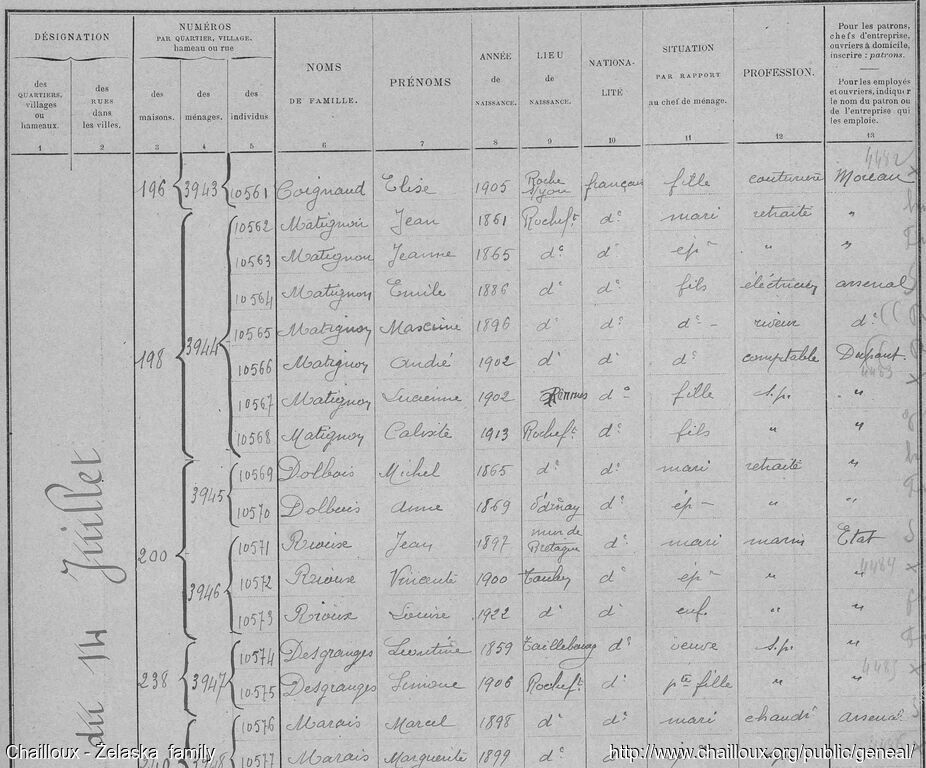 DÉSIGNATION
NUMÉROS
PAR QUARTIER, VILLAGE, hameau ou rue
NOMS DE FAMILLE.
PRÉNOMS
ANNÉE de NAISSANCE.
LIEU de NAISSANCE.
NATIONALITÉ
SITUATION PAR RAPPORT au chef de ménage.
PROFESSION.
Pour les patrons, chefs d'entreprise, ouvriers à domicile, inscrire : patrons.
Pour les employés et ouvriers, indiquer le nom du patron ou de l'entreprise qui les emploie.
des QUARTIERS, villages ou hameaux.
des RUES dans les villes.
des maisons.
des ménages.
des individus
1 2 3 4 5 6 7 8 9 10 11 12 13
4482
196 3943 10561 Coignaud Elise 1905 Roche s/yon français fille couturière Moreau
10562 Matignon Jean 1861 Rocheft d° mari retraité "
10563 Matignon Jeanne 1865 d° d° ép " "
10564 Matignon Emile 1886 d° d° fils électricien arsenal
198 3944 10565 Matignon Maxime 1896 d° d° d° riveur d°
10566 Matignon André 1902 d° d° d° comptable Dupont
4483
10567 Matignon Lucienne 1902 Rennes d° fille s.p. "
10568 Matignon Calixte 1913 Rocheft d° fils " "
10569 Dolbois Michel 1865 d° d° mari retraité "
3945 10570 Dolbois Anne 1869 d° ép " "
200 10571 Rioux Jean 1897 mur de Bretagne d° mari marin Etat
4484
3946 10572 Rioux Vincente 1900 d° ép " "
10573 Rioux Louise 1922 d° d° enf. " "
10574 Desgranges Léontine 1859 Taillebourg d° veuve s.p. "
4485
238 3947 10575 Desgranges Simone 1906 Rocheft d° pte fille " "
10576 Marais Marcel 1898 d° d° mari chaudr arsenal
240 3948 10577 Marais Marguerite 1899 d° d°
du 14 Juillet
Chailloux - Zelaska family
http://www.chailloux.org/public/geneal/